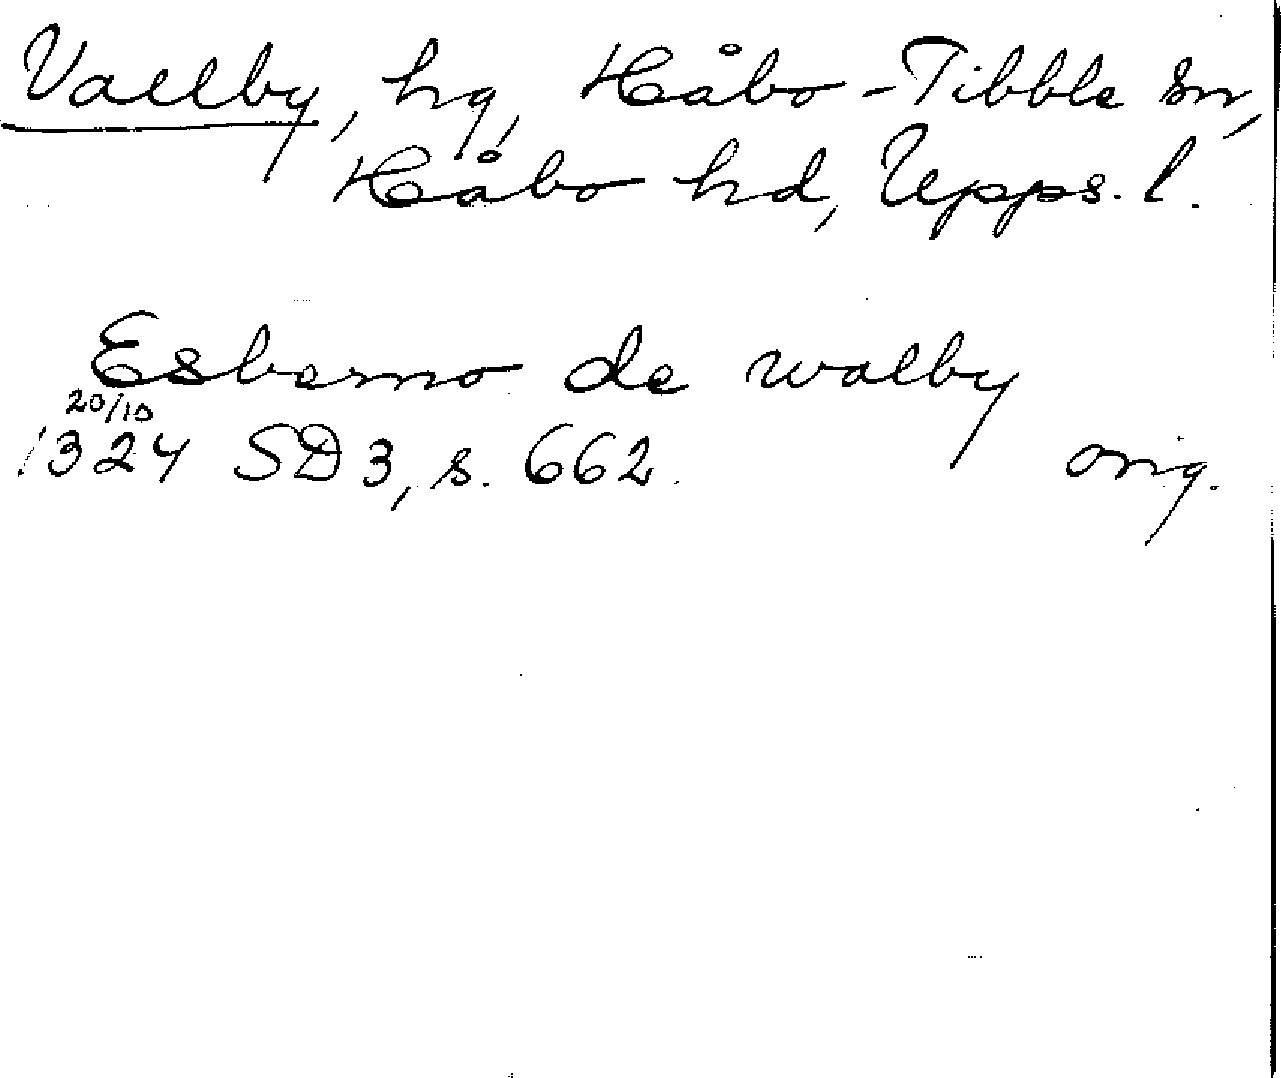 Vallby, hg, Håbo-Tibble sn,
Håbo hd, Upps. l.
Esberno de walby
20/10
1324 SD 3, s. 662. orig.